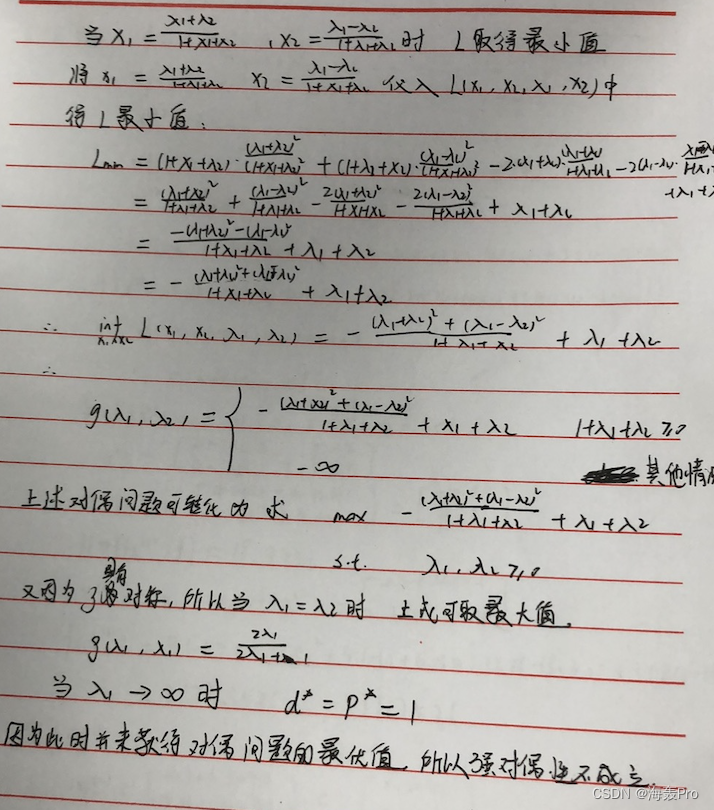 当 x₁ = (λ₁+λ₂)/(1+λ₁+λ₂) , x₂ = (λ₁-λ₂)/(1+λ₁+λ₂) 时 L 取得最小值
将 x₁ = (λ₁+λ₂)/(1+λ₁+λ₂) x₂ = (λ₁-λ₂)/(1+λ₁+λ₂) 代入 L(x₁, x₂, λ₁, λ₂) 中
得 L 最小值:
Lmin = (1+λ₁+λ₂)·(λ₁+λ₂)²/(1+λ₁+λ₂)² + (1+λ₁+λ₂)·(λ₁-λ₂)²/(1+λ₁+λ₂)² - 2(λ₁+λ₂)·(λ₁+λ₂)/(1+λ₁+λ₂) - 2(λ₁-λ₂)·
+λ₁+
= (λ₁+λ₂)²/(1+λ₁+λ₂) + (λ₁-λ₂)²/(1+λ₁+λ₂) - 2(λ₁+λ₂)²/(1+λ₁+λ₂) - 2(λ₁-λ₂)²/(1+λ₁+λ₂) + λ₁+λ₂
= (-(λ₁+λ₂)²-(λ₁-λ₂)²)/(1+λ₁+λ₂) + λ₁+λ₂
= - ((λ₁+λ₂)²+(λ₁-λ₂)²)/(1+λ₁+λ₂) + λ₁+λ₂
∴ inf x₁,x₂ L(x₁, x₂, λ₁, λ₂) = - ((λ₁+λ₂)²+(λ₁-λ₂)²)/(1+λ₁+λ₂) + λ₁+λ₂
∴
g(λ₁, λ₂) = { - ((λ₁+λ₂)²+(λ₁-λ₂)²)/(1+λ₁+λ₂) + λ₁+λ₂ 1+λ₁+λ₂ ≥0
-∞ 其他情
上述对偶问题可转化为 求 max - ((λ₁+λ₂)²+(λ₁-λ₂)²)/(1+λ₁+λ₂) + λ₁+λ₂
s.t. λ₁, λ₂ ≥0
又因为 g具有对称,所以当 λ₁=λ₂ 时 上式可取最大值。
g(λ₁, λ₁) = 2λ₁/(2λ₁+1)
当 λ₁→∞ 时 d* = p* = 1
因为此时并未获得对偶问题的最优值,所以强对偶性不成立.
CSDN @海轰Pro